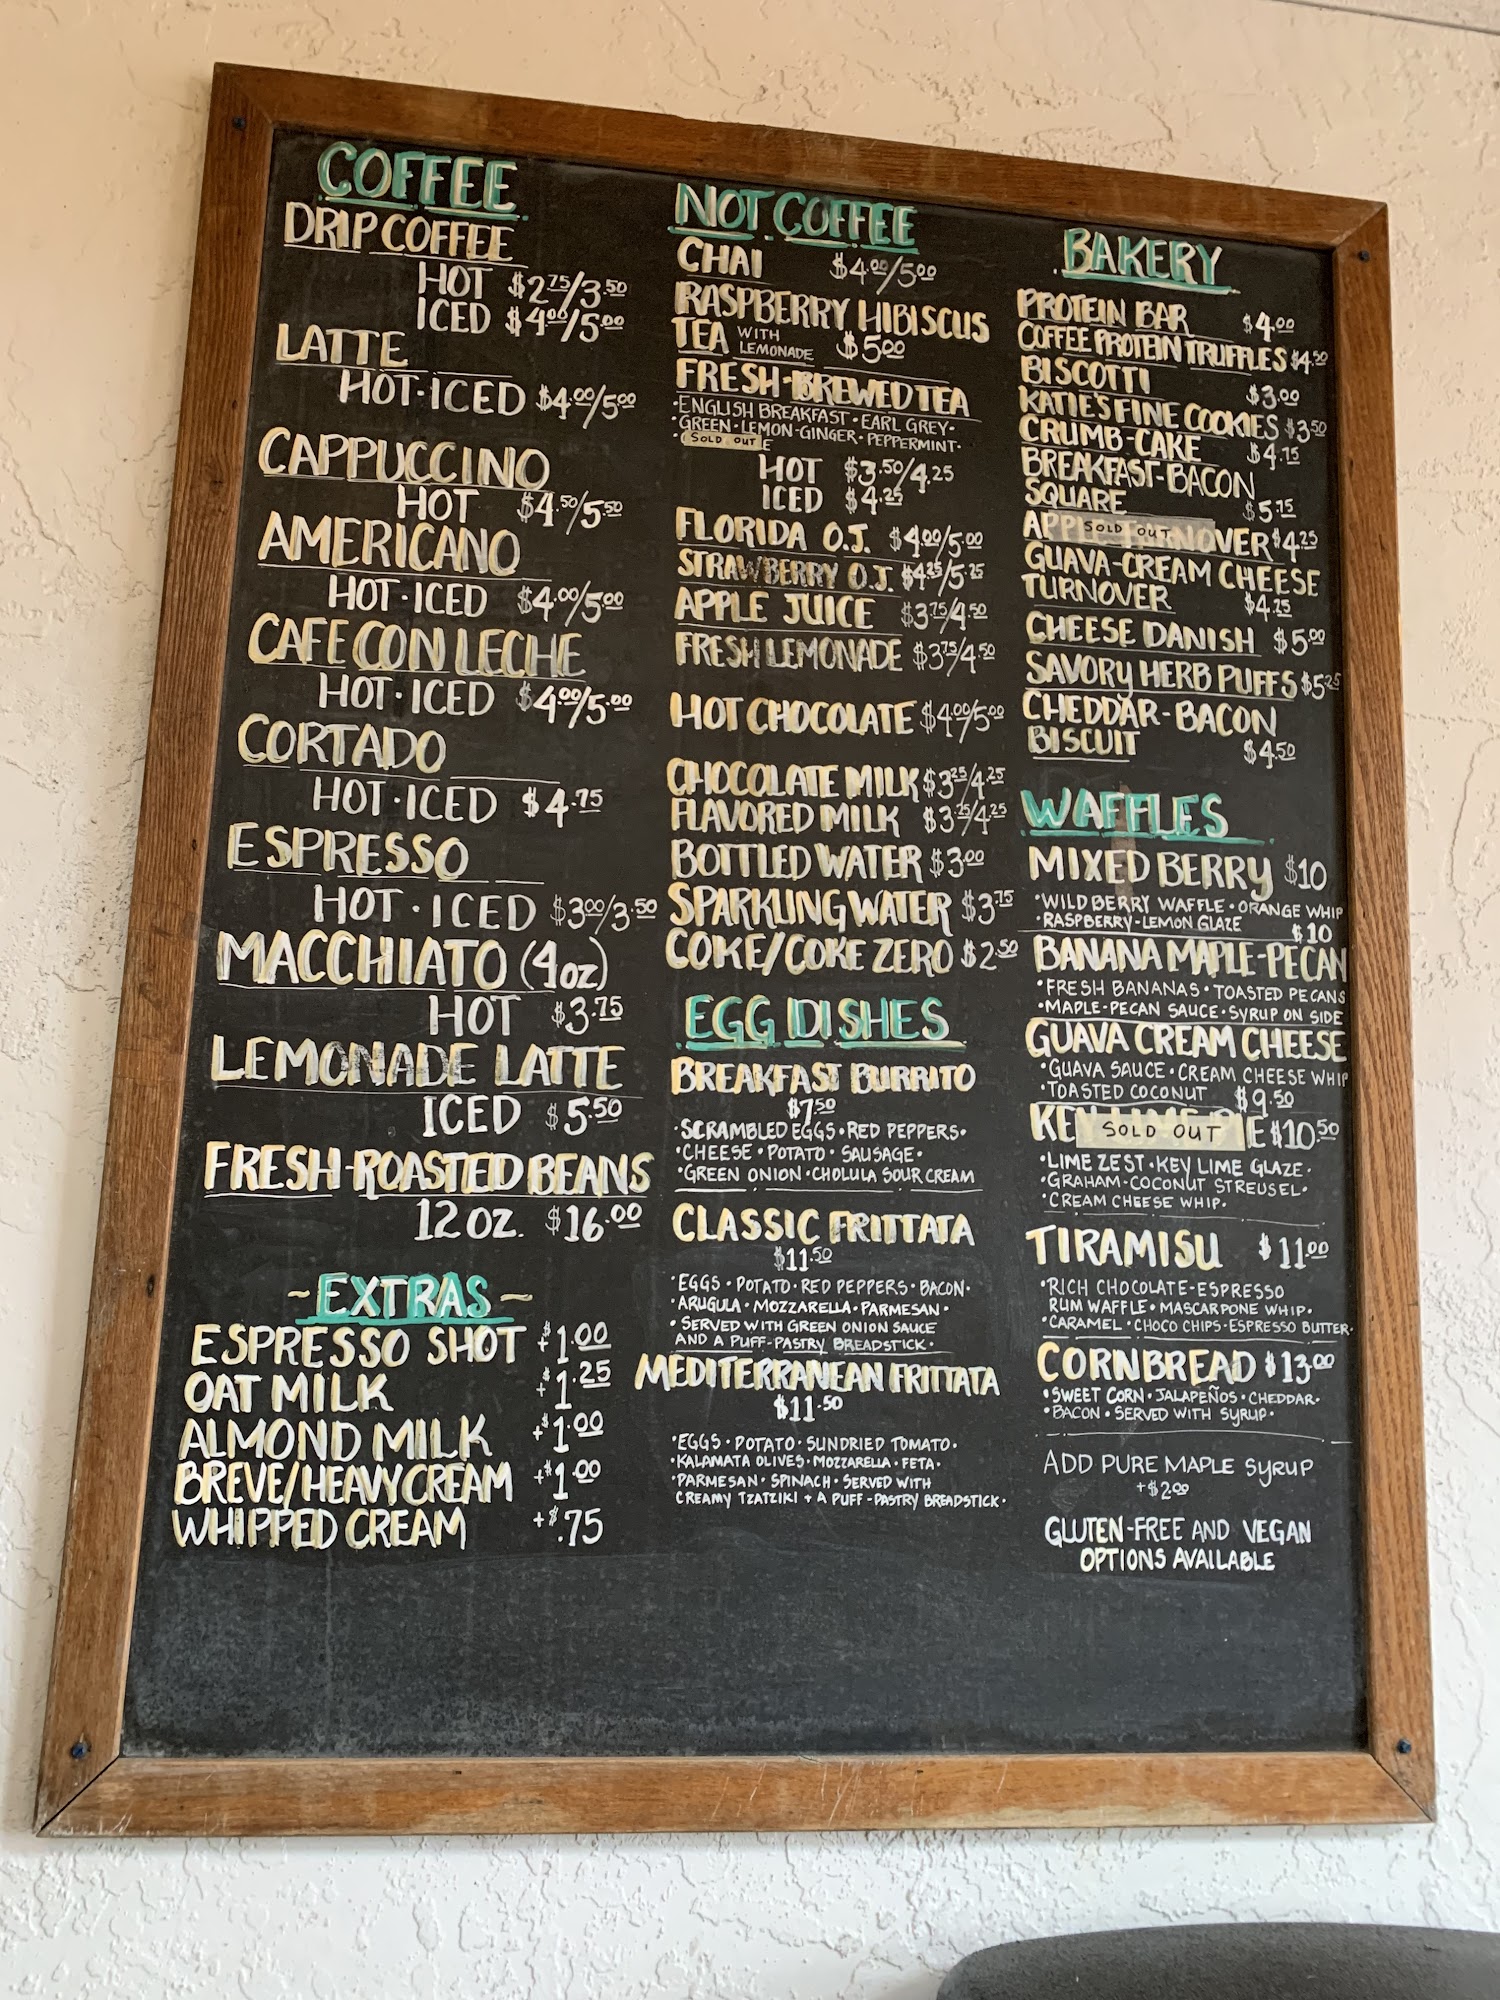 COFFEE
DRIP COFFEE
HOT $2.75/3.50
ICED $4.00/5.00
LATTE
HOT·ICED $4.00/5.00
CAPPUCCINO
HOT $4.50/5.50
AMERICANO
HOT·ICED $4.00/5.00
CAFE CON LECHE
HOT·ICED $4.00/5.00
CORTADO
HOT·ICED $4.75
ESPRESSO
HOT·ICED $3.00/3.50
MACCHIATO (4oz)
HOT $3.75
LEMONADE LATTE
ICED $5.50
FRESH-ROASTED BEANS
12 OZ. $16.00
~EXTRAS~
ESPRESSO SHOT +$1.00
OAT MILK +$1.25
ALMOND MILK +$1.00
BREVE/HEAVY CREAM +$1.00
WHIPPED CREAM +$.75
NOT COFFEE
CHAI $4.00/5.00
RASPBERRY HIBISCUS
TEA WITH LEMONADE $5.00
FRESH-BREWED TEA
·ENGLISH BREAKFAST·EARL GREY·
·GREEN·LEMON-GINGER·PEPPERMINT·
·SOLD OUT E
HOT $3.50/4.25
ICED $4.25
FLORIDA O.J. $4.00/5.00
STRAWBERRY O.J. $4.25/5.25
APPLE JUICE $3.75/4.50
FRESH LEMONADE $3.75/4.50
HOT CHOCOLATE $4.00/5.00
CHOCOLATE MILK $3.25/4.25
FLAVORED MILK $3.25/4.25
BOTTLED WATER $3.00
SPARKLING WATER $3.75
COKE/COKE ZERO $2.50
EGG DISHES
BREAKFAST BURRITO
$7.50
·SCRAMBLED EGGS·RED PEPPERS·
·CHEESE·POTATO·SAUSAGE·
·GREEN ONION·CHOLULA SOUR CREAM
CLASSIC FRITTATA
$11.50
·EGGS·POTATO·RED PEPPERS·BACON·
·ARUGULA·MOZZARELLA·PARMESAN·
·SERVED WITH GREEN ONION SAUCE
AND A PUFF-PASTRY BREADSTICK·
MEDITERRANEAN FRITTATA
$11.50
·EGGS·POTATO·SUNDRIED TOMATO·
·KALAMATA OLIVES·MOZZARELLA·FETA·
·PARMESAN·SPINACH·SERVED WITH
CREAMY TZATZIKI + A PUFF-PASTRY BREADSTICK·
BAKERY
PROTEIN BAR $4.00
COFFEE PROTEIN TRUFFLES $4.50
BISCOTTI $3.00
KATIE'S FINE COOKIES $3.50
CRUMB-CAKE $4.75
BREAKFAST-BACON
SQUARE $5.75
APPL SOLD OUT NOVER $4.25
GUAVA-CREAM CHEESE
TURNOVER $4.25
CHEESE DANISH $5.00
SAVORY HERB PUFFS $5.25
CHEDDAR-BACON
BISCUIT $4.50
WAFFLES
MIXED BERRY $10
·WILD BERRY WAFFLE·ORANGE WHIP
·RASPBERRY-LEMON GLAZE
$10
BANANA MAPLE-PECAN
·FRESH BANANAS·TOASTED PECANS
·MAPLE-PECAN SAUCE·SYRUP ON SIDE
GUAVA CREAM CHEESE
·GUAVA SAUCE·CREAM CHEESE WHIP
·TOASTED COCONUT $9.50
KE SOLD OUT E $10.50
·LIME ZEST·KEY LIME GLAZE·
·GRAHAM-COCONUT STREUSEL·
·CREAM CHEESE WHIP·
TIRAMISU $11.00
·RICH CHOCOLATE-ESPRESSO
RUM WAFFLE·MASCARPONE WHIP·
·CARAMEL·CHOCO CHIPS·ESPRESSO BUTTER·
CORNBREAD $13.00
·SWEET CORN·JALAPEÑOS·CHEDDAR·
·BACON·SERVED WITH SYRUP·
ADD PURE MAPLE SYRUP
+$2.00
GLUTEN-FREE AND VEGAN
OPTIONS AVAILABLE